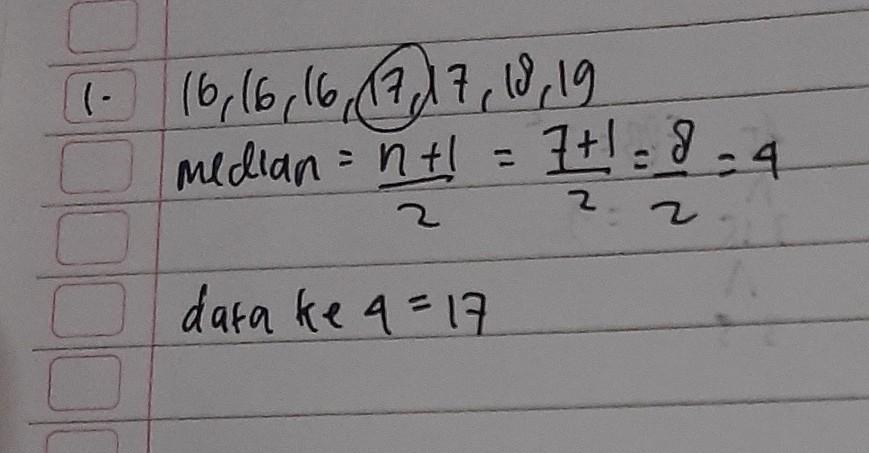 1. 16, 16, 16, 17, 17, 18, 19
median = n+1/2 = 7+1/2 = 8/2 = 4
data ke 4 = 17